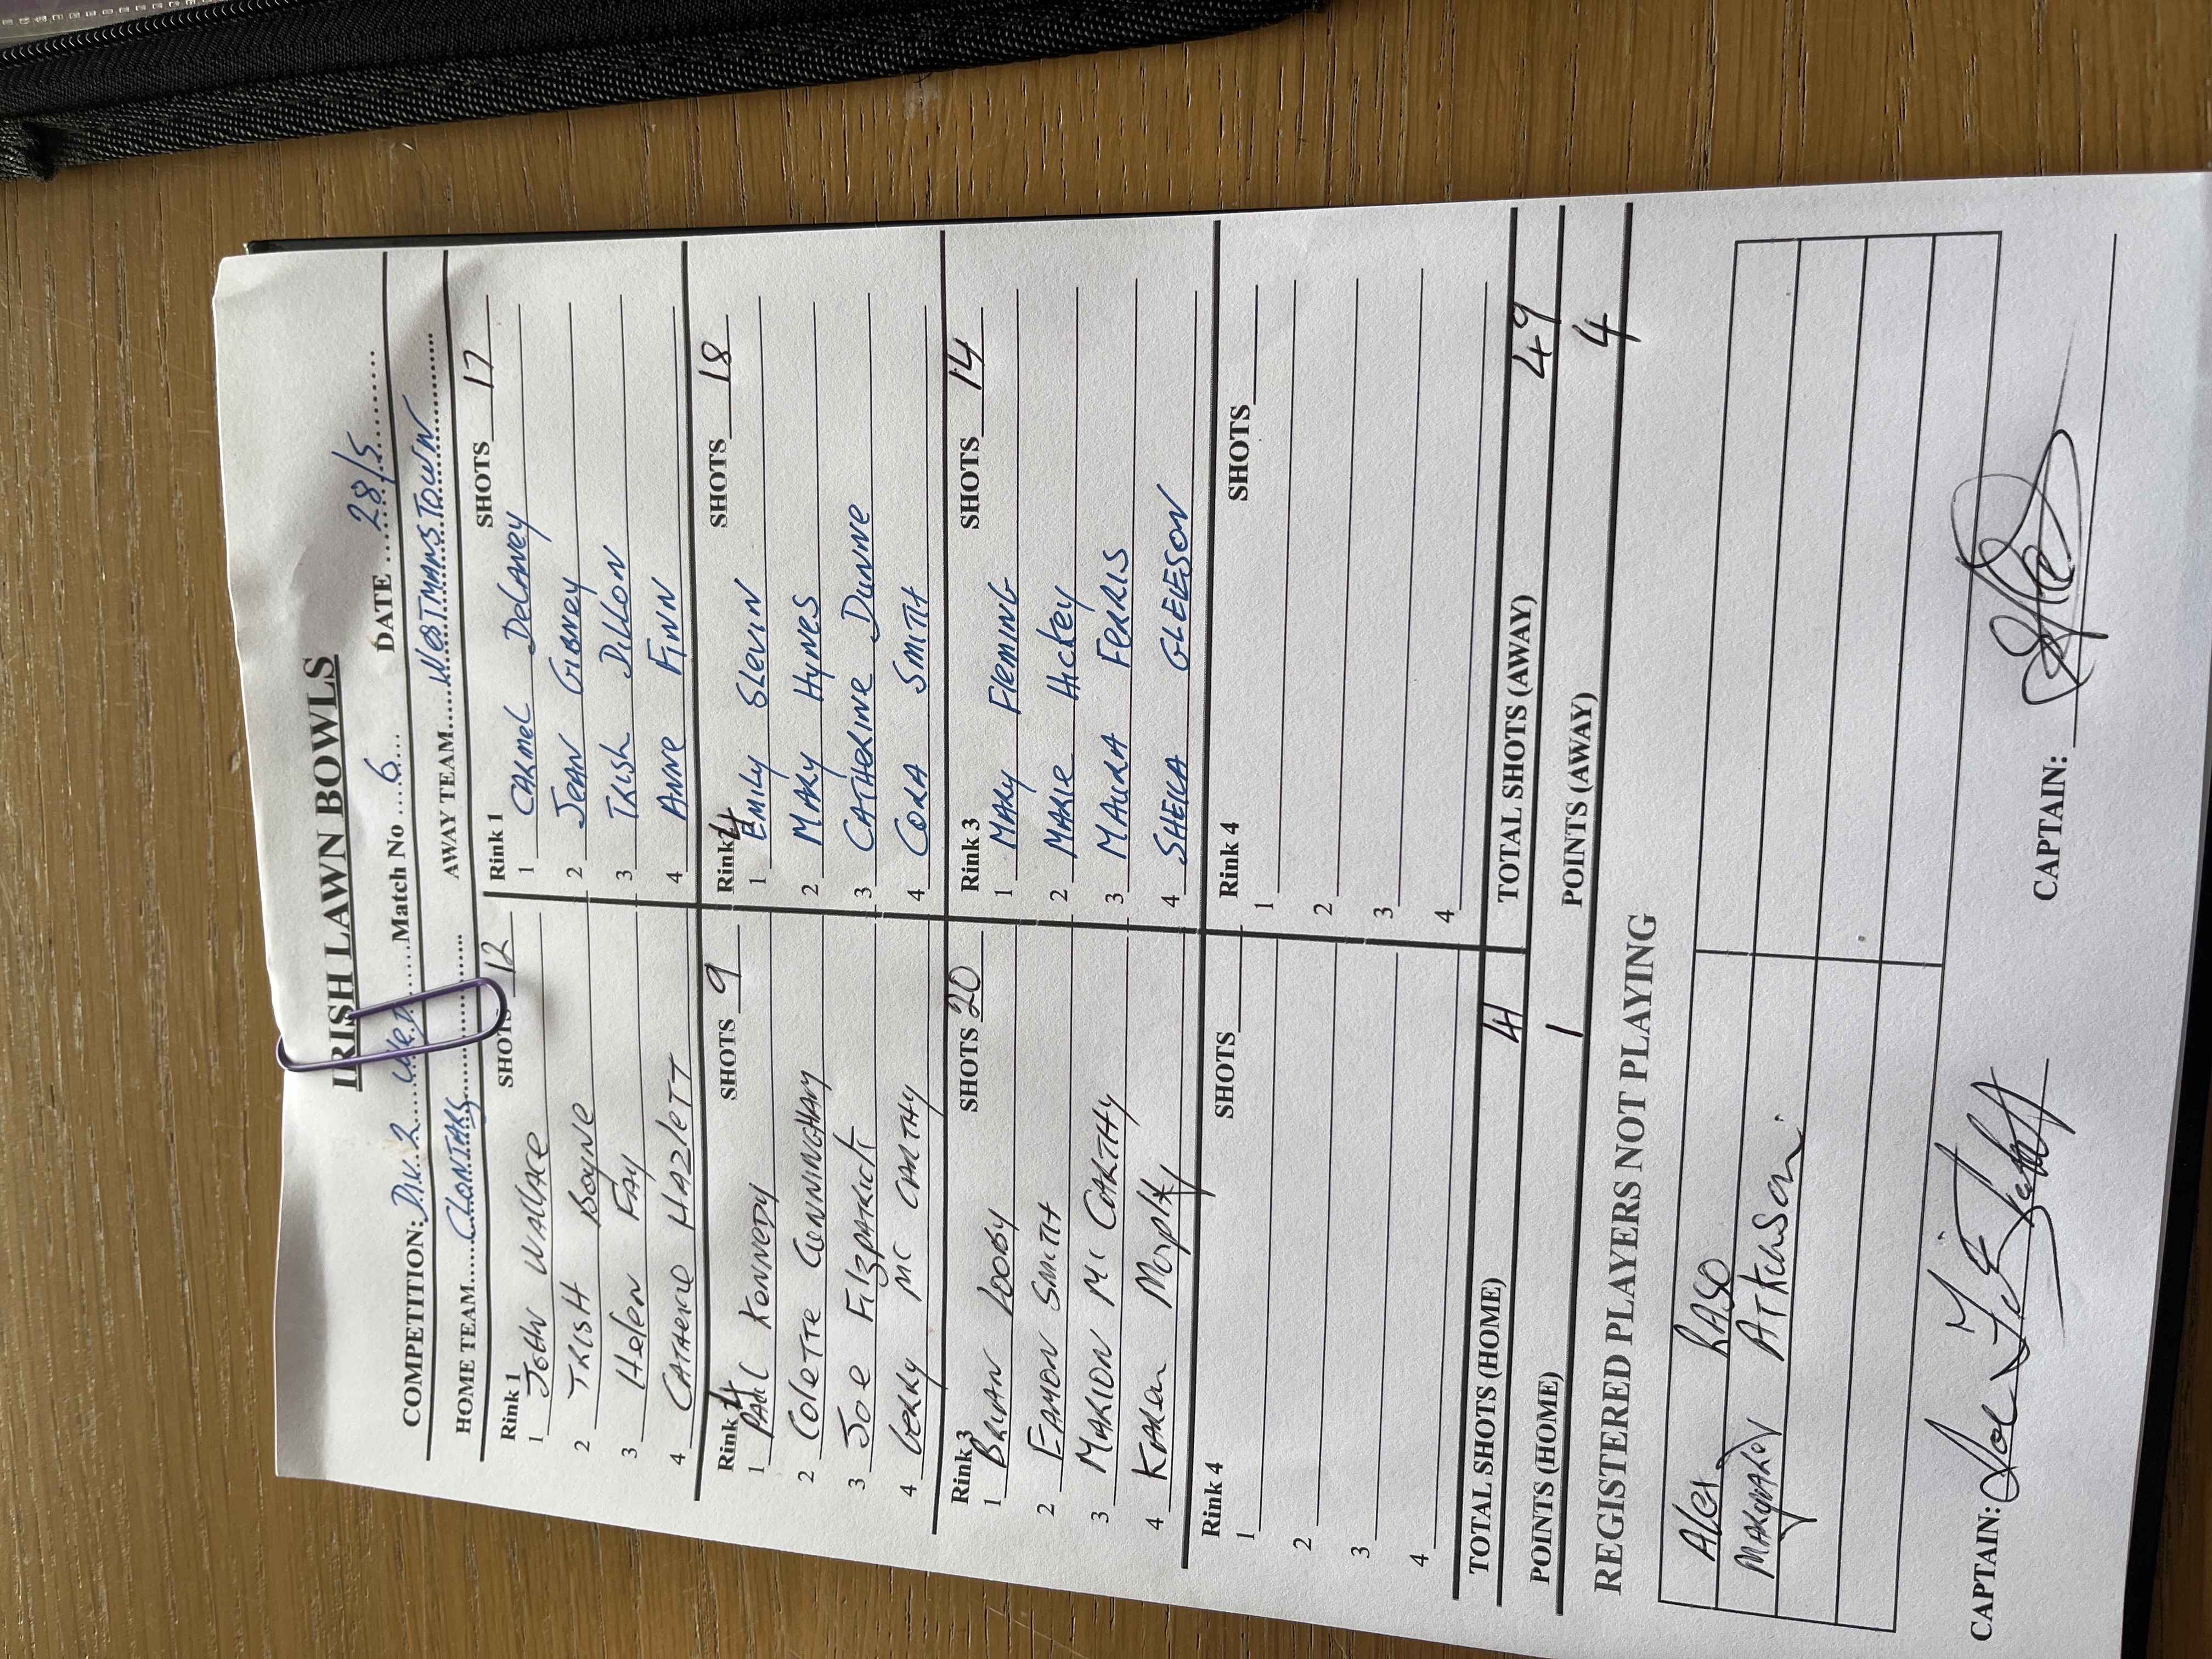 IRISH LAWN BOWLS
COMPETITION: Div. 2 Wed Match No 6 DATE 28/5
HOME TEAM CLONTARF AWAY TEAM WESTMANSTOWN
Rink 1 SHOTS 12
1 JOHN WALLACE
2 TRISH BOYNE
3 Helen FAY
4 CATHERIE HAZLETT
Rink 1 SHOTS 17
1 CARMEL DELANEY
2 JEAN GIBNEY
3 TRISH DILLON
4 ANNE FINN
Rink 4 SHOTS 9
1 PAUL KENNEDY
2 COLETTE CUNNINGHAM
3 JOE FITZPATRICK
4 GERRY MC CARTHY
Rink 4 SHOTS 18
1 EMILY SLEVIN
2 MARY HYNES
3 CATHERINE DUNNE
4 CORA SMITH
Rink 3 SHOTS 20
1 BRIAN LOOBY
2 EAMON SMITH
3 MARION Mc CARTHY
4 KAREN Murphy
Rink 3 SHOTS 14
1 MARY FLEMING
2 MARIE HICKEY
3 MAURA FERRIS
4 SHEILA GLEESON
Rink 4 SHOTS
1
2
3
4
Rink 4 SHOTS
1
2
3
4
TOTAL SHOTS (HOME) 41 TOTAL SHOTS (AWAY) 49
POINTS (HOME) 1 POINTS (AWAY) 4
REGISTERED PLAYERS NOT PLAYING
Alex RASO
ATKINSON
CAPTAIN: Joe CAPTAIN: